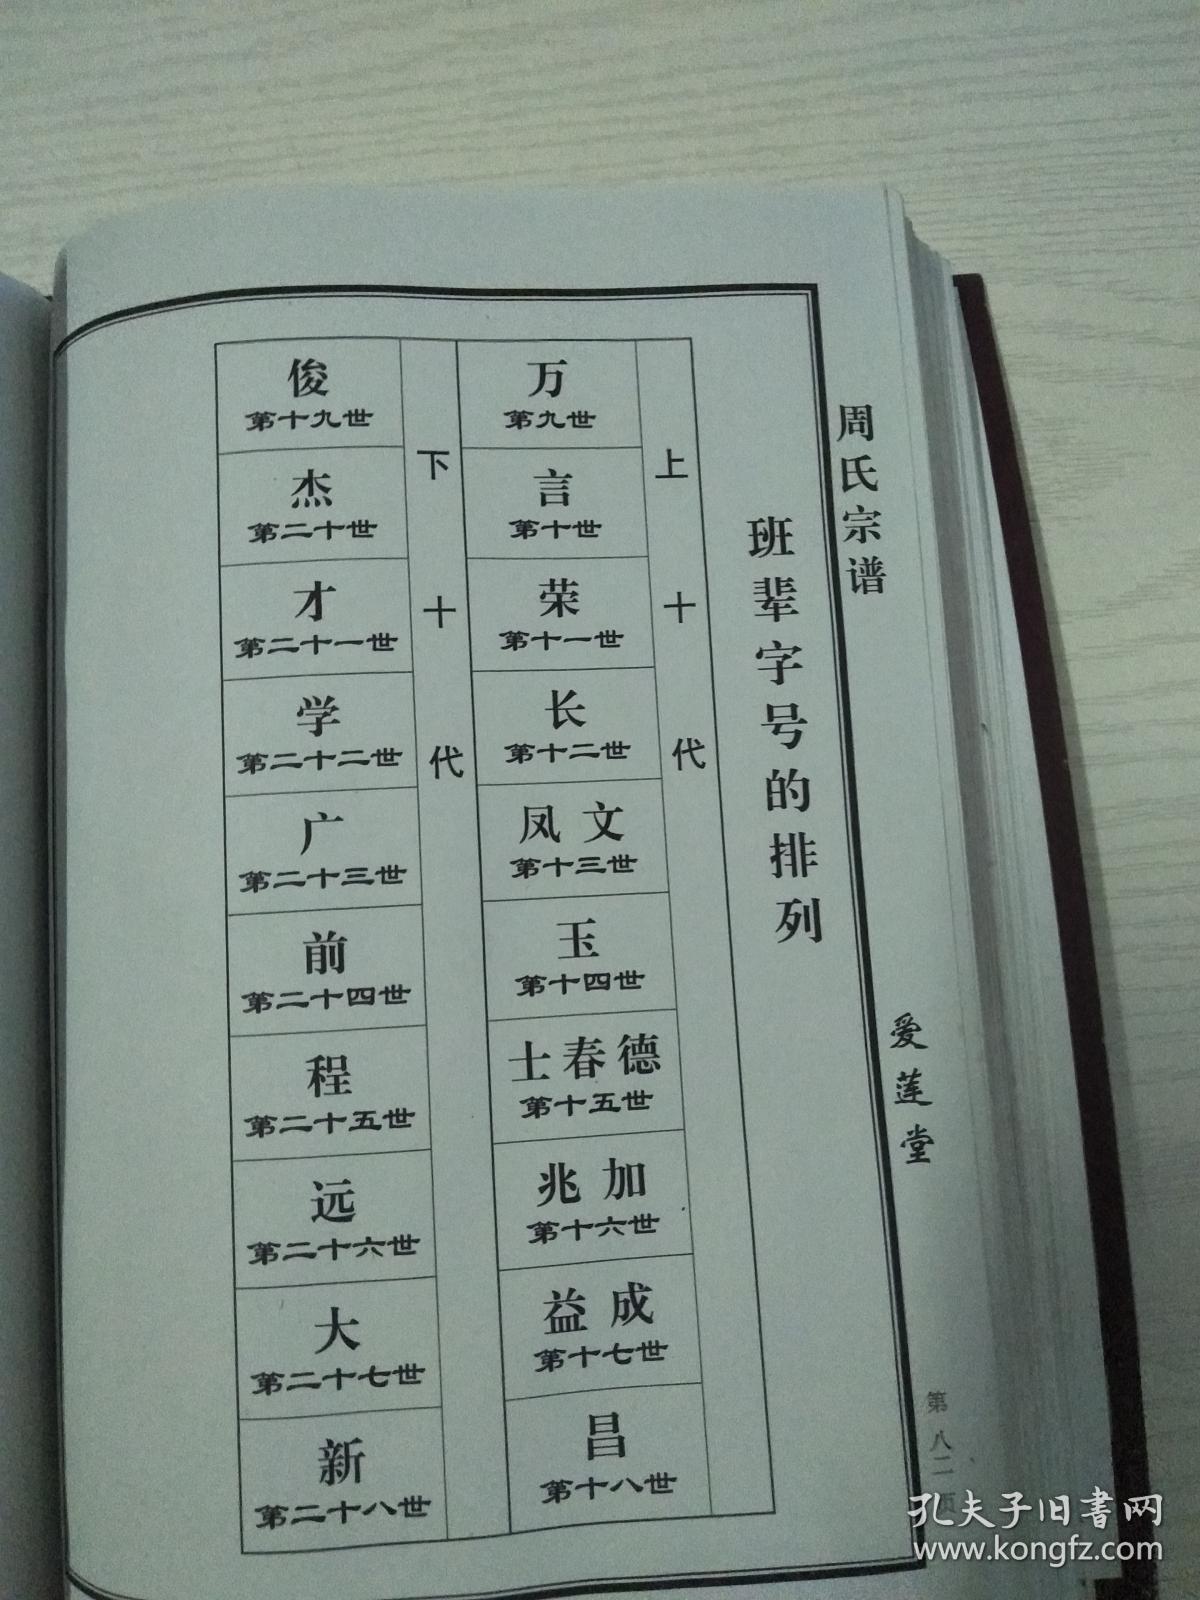 周氏宗谱
爱莲堂
第八二页
班辈字号的排列
上十代
万
第九世
言
第十世
荣
第十一世
长
第十二世
凤文
第十三世
玉
第十四世
士春德
第十五世
兆加
第十六世
益成
第十七世
昌
第十八世
下十代
俊
第十九世
杰
第二十世
才
第二十一世
学
第二十二世
广
第二十三世
前
第二十四世
程
第二十五世
远
第二十六世
大
第二十七世
新
第二十八世
孔夫子旧书网
www.kongfz.com